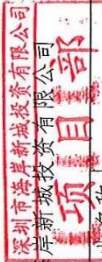 深圳市海岸新城投资有限公司
岸新城投资有限公司
项目部